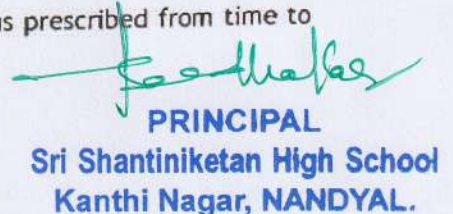 s prescribed from time to
PRINCIPAL
Sri Shantiniketan High School
Kanthi Nagar, NANDYAL.